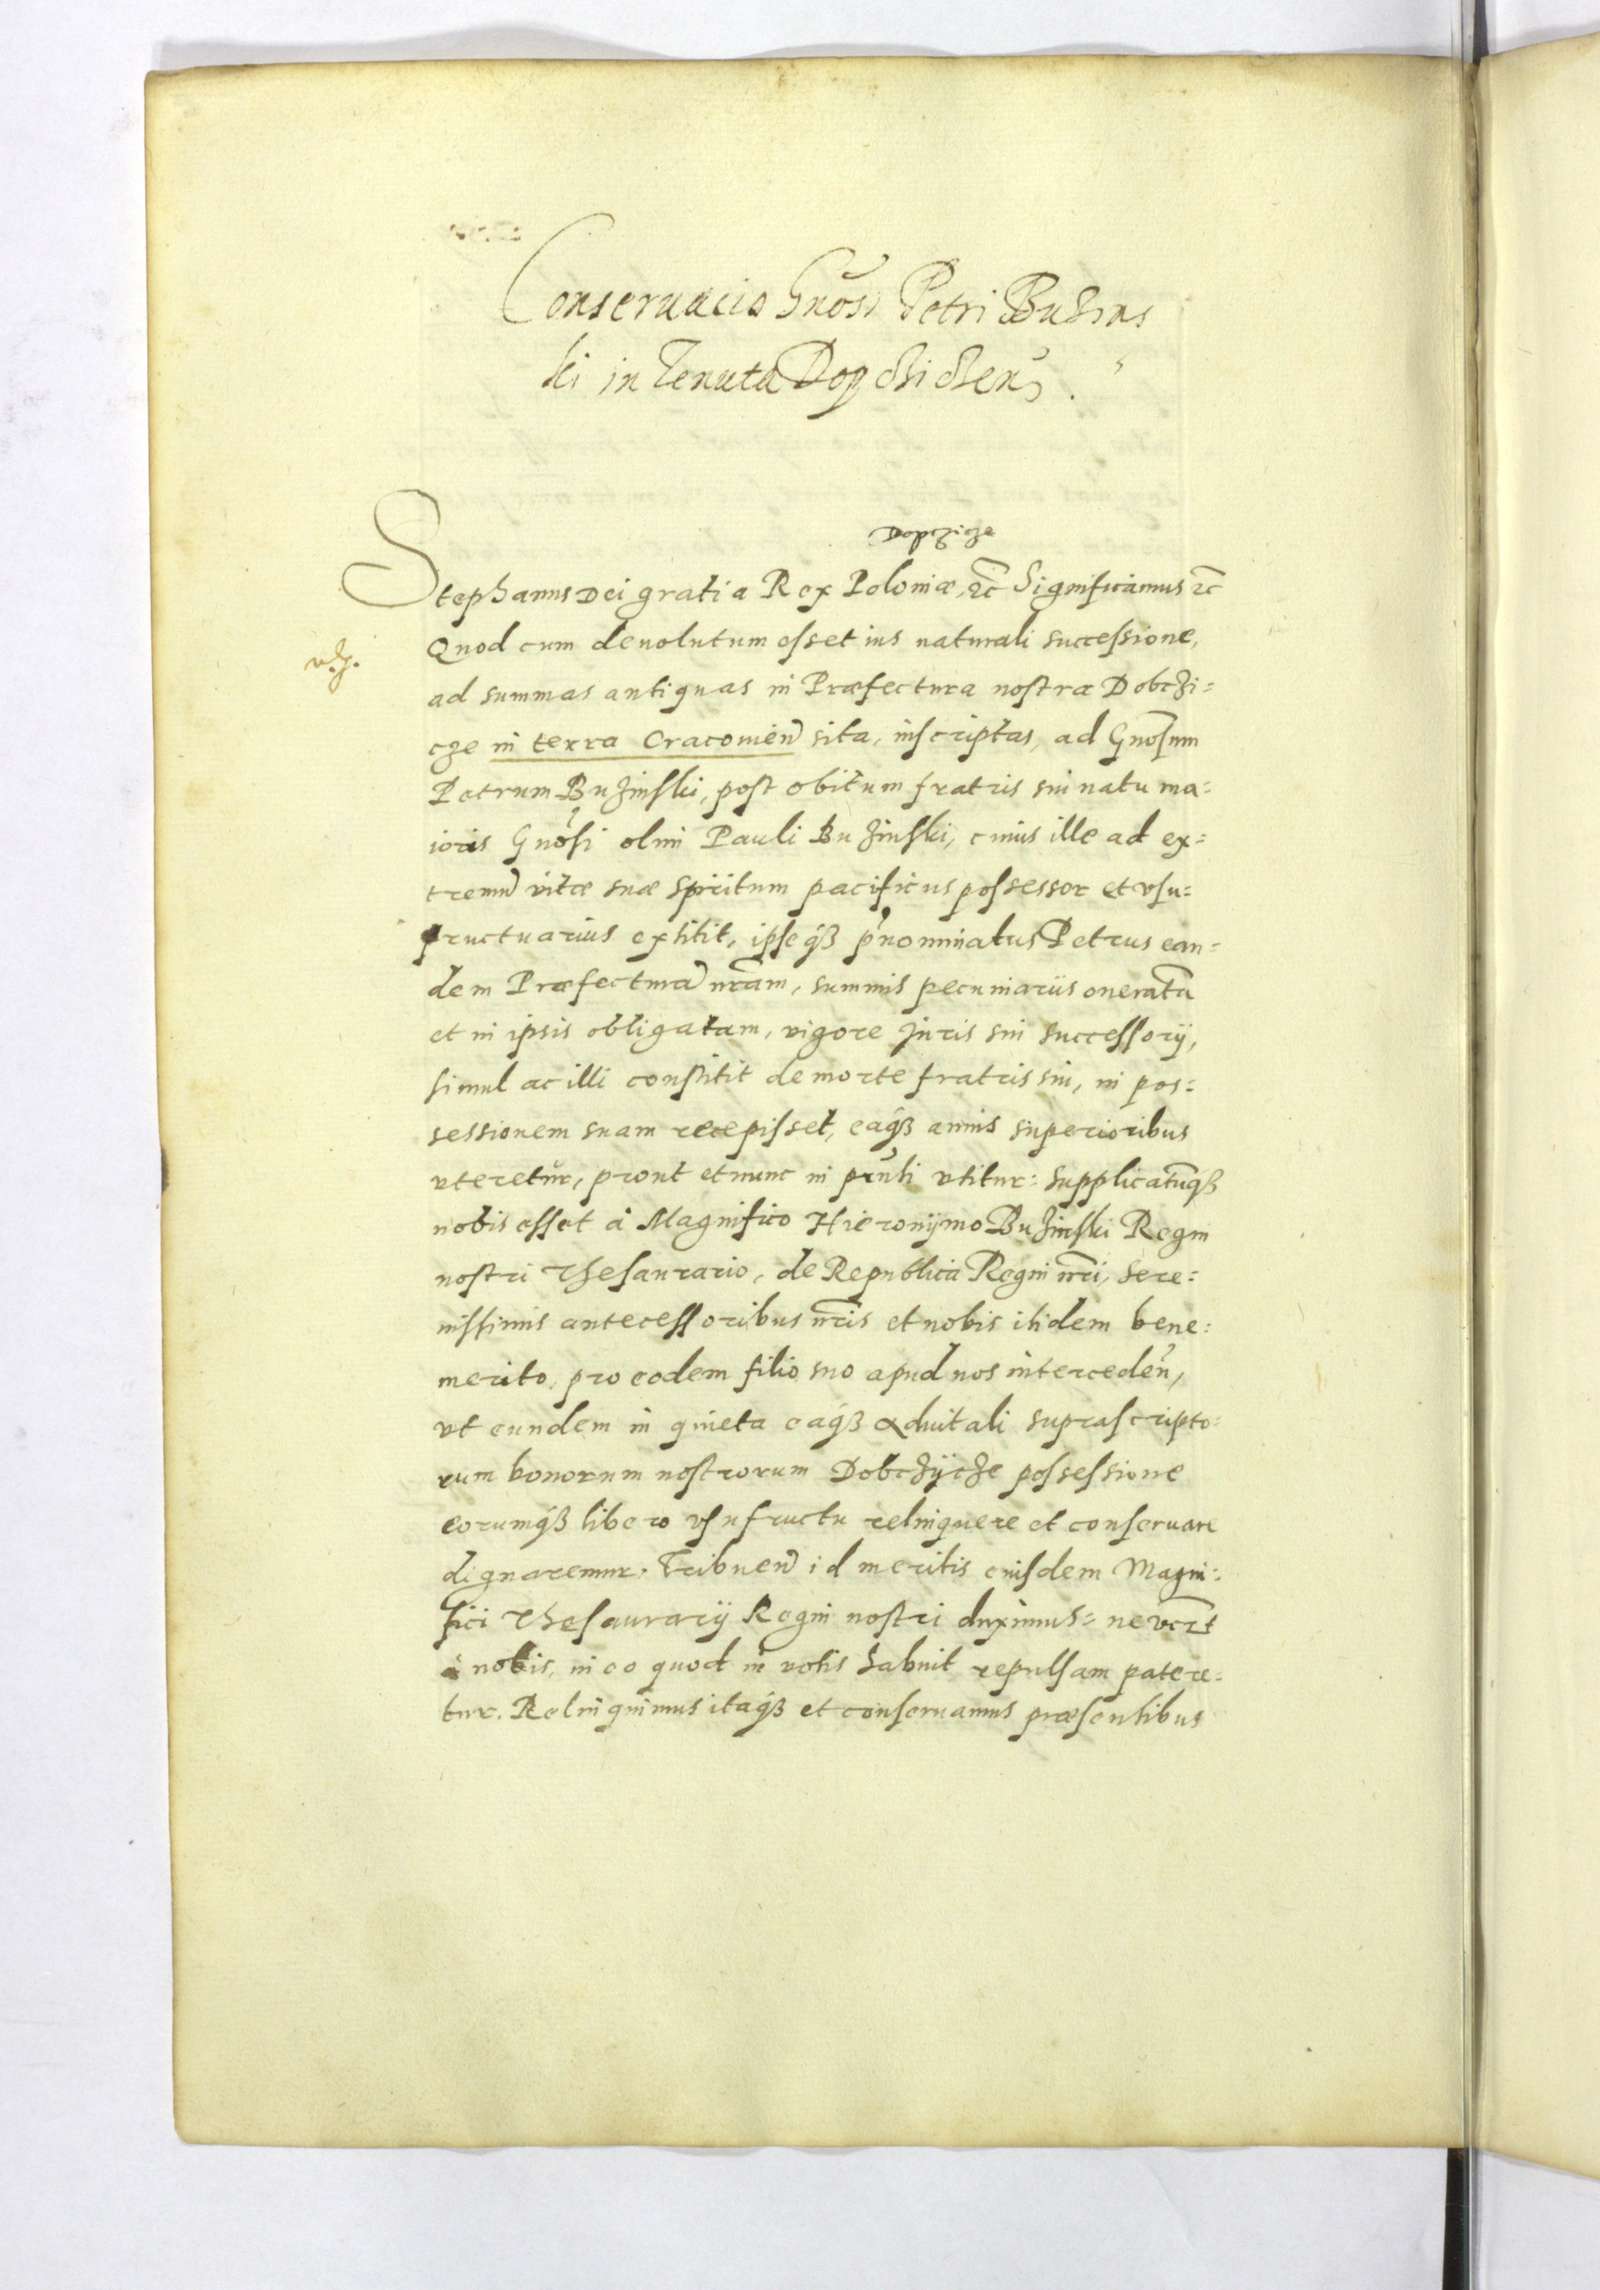 Conseruacio Gnosi Petri Buzins
ki in Tenuta Dopchichen.
Dopczicze
Stephanus Dei gratia Rex Poloniæ, etc Significamus etc
Quod cum deuolutum esset ius naturali successione,
ad summas antiquas in Præfectura nostra Dobczi=
cze in terra Cracouien sita, inscriptas, ad Gnosum
Petrum Buzinski, post obitum fratris sui natu ma=
ioris Gnosi olim Pauli Buzinski, cuius ille ad ex=
tremu vitæ suæ spiritum pacificus possessor et vsu=
fructuarius extitit, ipseq3 pnominatus Petrus ean=
dem Præfectura nram, summis pecuniarijs onerata
et in ipsis obligatam, vigore Juris sui successorij,
simul ac illi constitit de morte fratris sui, in pos=
sessionem suam recepisset, eaq3 annis superioribus
vteretur, prout et nunc in pnti vtitur: supplicatuq3
nobis esset à Magnifico Hieronijmo Buzinski Regni
nostri Thesaurario, de Republica Regni nri, Sere=
nissimis antecessoribus nris et nobis itidem bene=
merito, pro eodem filio suo apud nos interceden,
vt eundem in quieta eaq3 aduitali suprascripto=
rum bonorum nostrorum Dobczijcze possessione
eorumq3 libero vsufructu relinquere et conseruare
dignaremur. Tribuen id meritis eiusdem Magni=
fici Thesaurarij Regni nostri duximus: ne
à nobis, in eo quod in votis habuit repulsam patere=
tur. Relinquimus itaq3 et conseruamus præsentibus